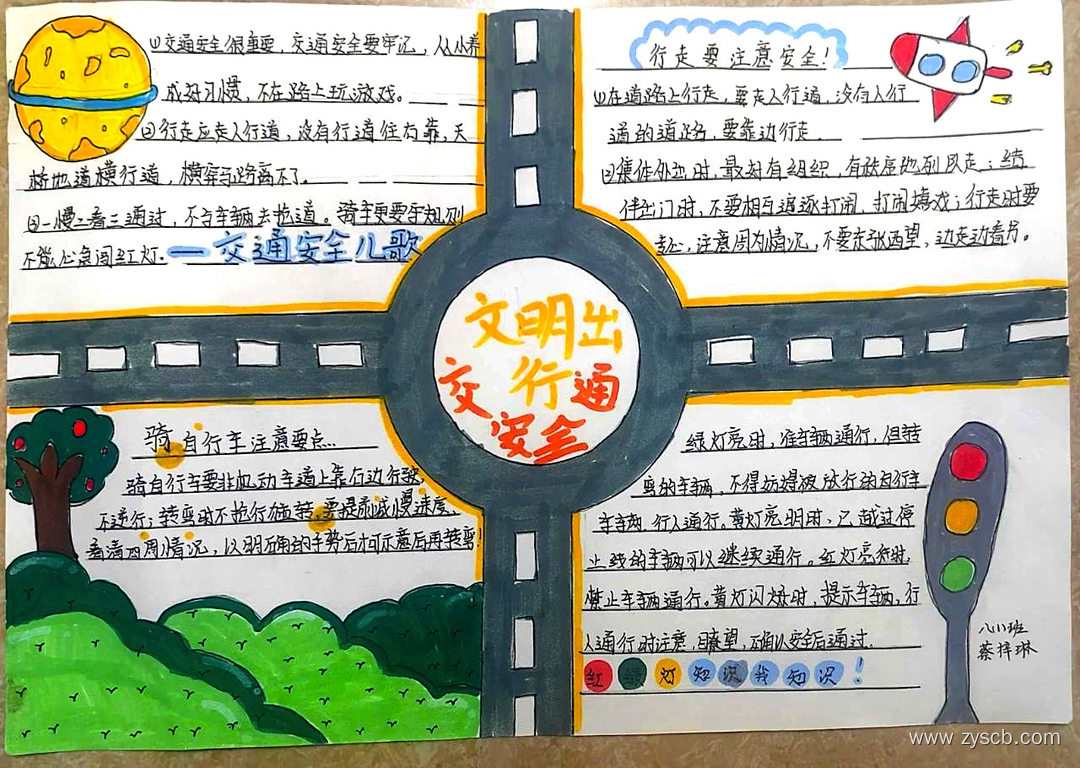 ①交通安全很重要，交通安全要牢记，从小养
成好习惯，不在路上玩游戏。
②行走应走人行道，没有行道往右靠，天
桥地道横行道，横穿马路离不了。
③一慢二看三通过，不与车辆去抢道。骑车更要守规则
不能心急闯红灯。
—交通安全儿歌
行走要注意安全！
①在道路上行走，要走人行道，没有人行
道的道路，要靠边行走.
②集体外出时，最好有组织，有秩序地列队走；结
伴出门时，不要相互追逐打闹、打闹嬉戏；行走时要
专心，注意周围情况，不要东张西望，边走边看书。
文明出
行
交通
安全
骑自行车注意要点...
骑自行车要非机动车道上靠右边行驶，
不逆行；转弯时不抢行猛转，要提前减慢速度，
看清四周情况，以明确的手势后相示意后再转弯！
绿灯亮时，准车辆通行，但转
弯的车辆，不得妨碍被放行的自行车
车辆，行人通行。黄灯亮明时，已越过停
止线的车辆可以继续通行。红灯亮行时，
禁止车辆通行。黄灯闪烁时，提示车辆，行
人通行时注意，瞭望，确认安全后通过.
红绿灯知识我知识！
八小班
蔡梓琳
www.zyscb.com